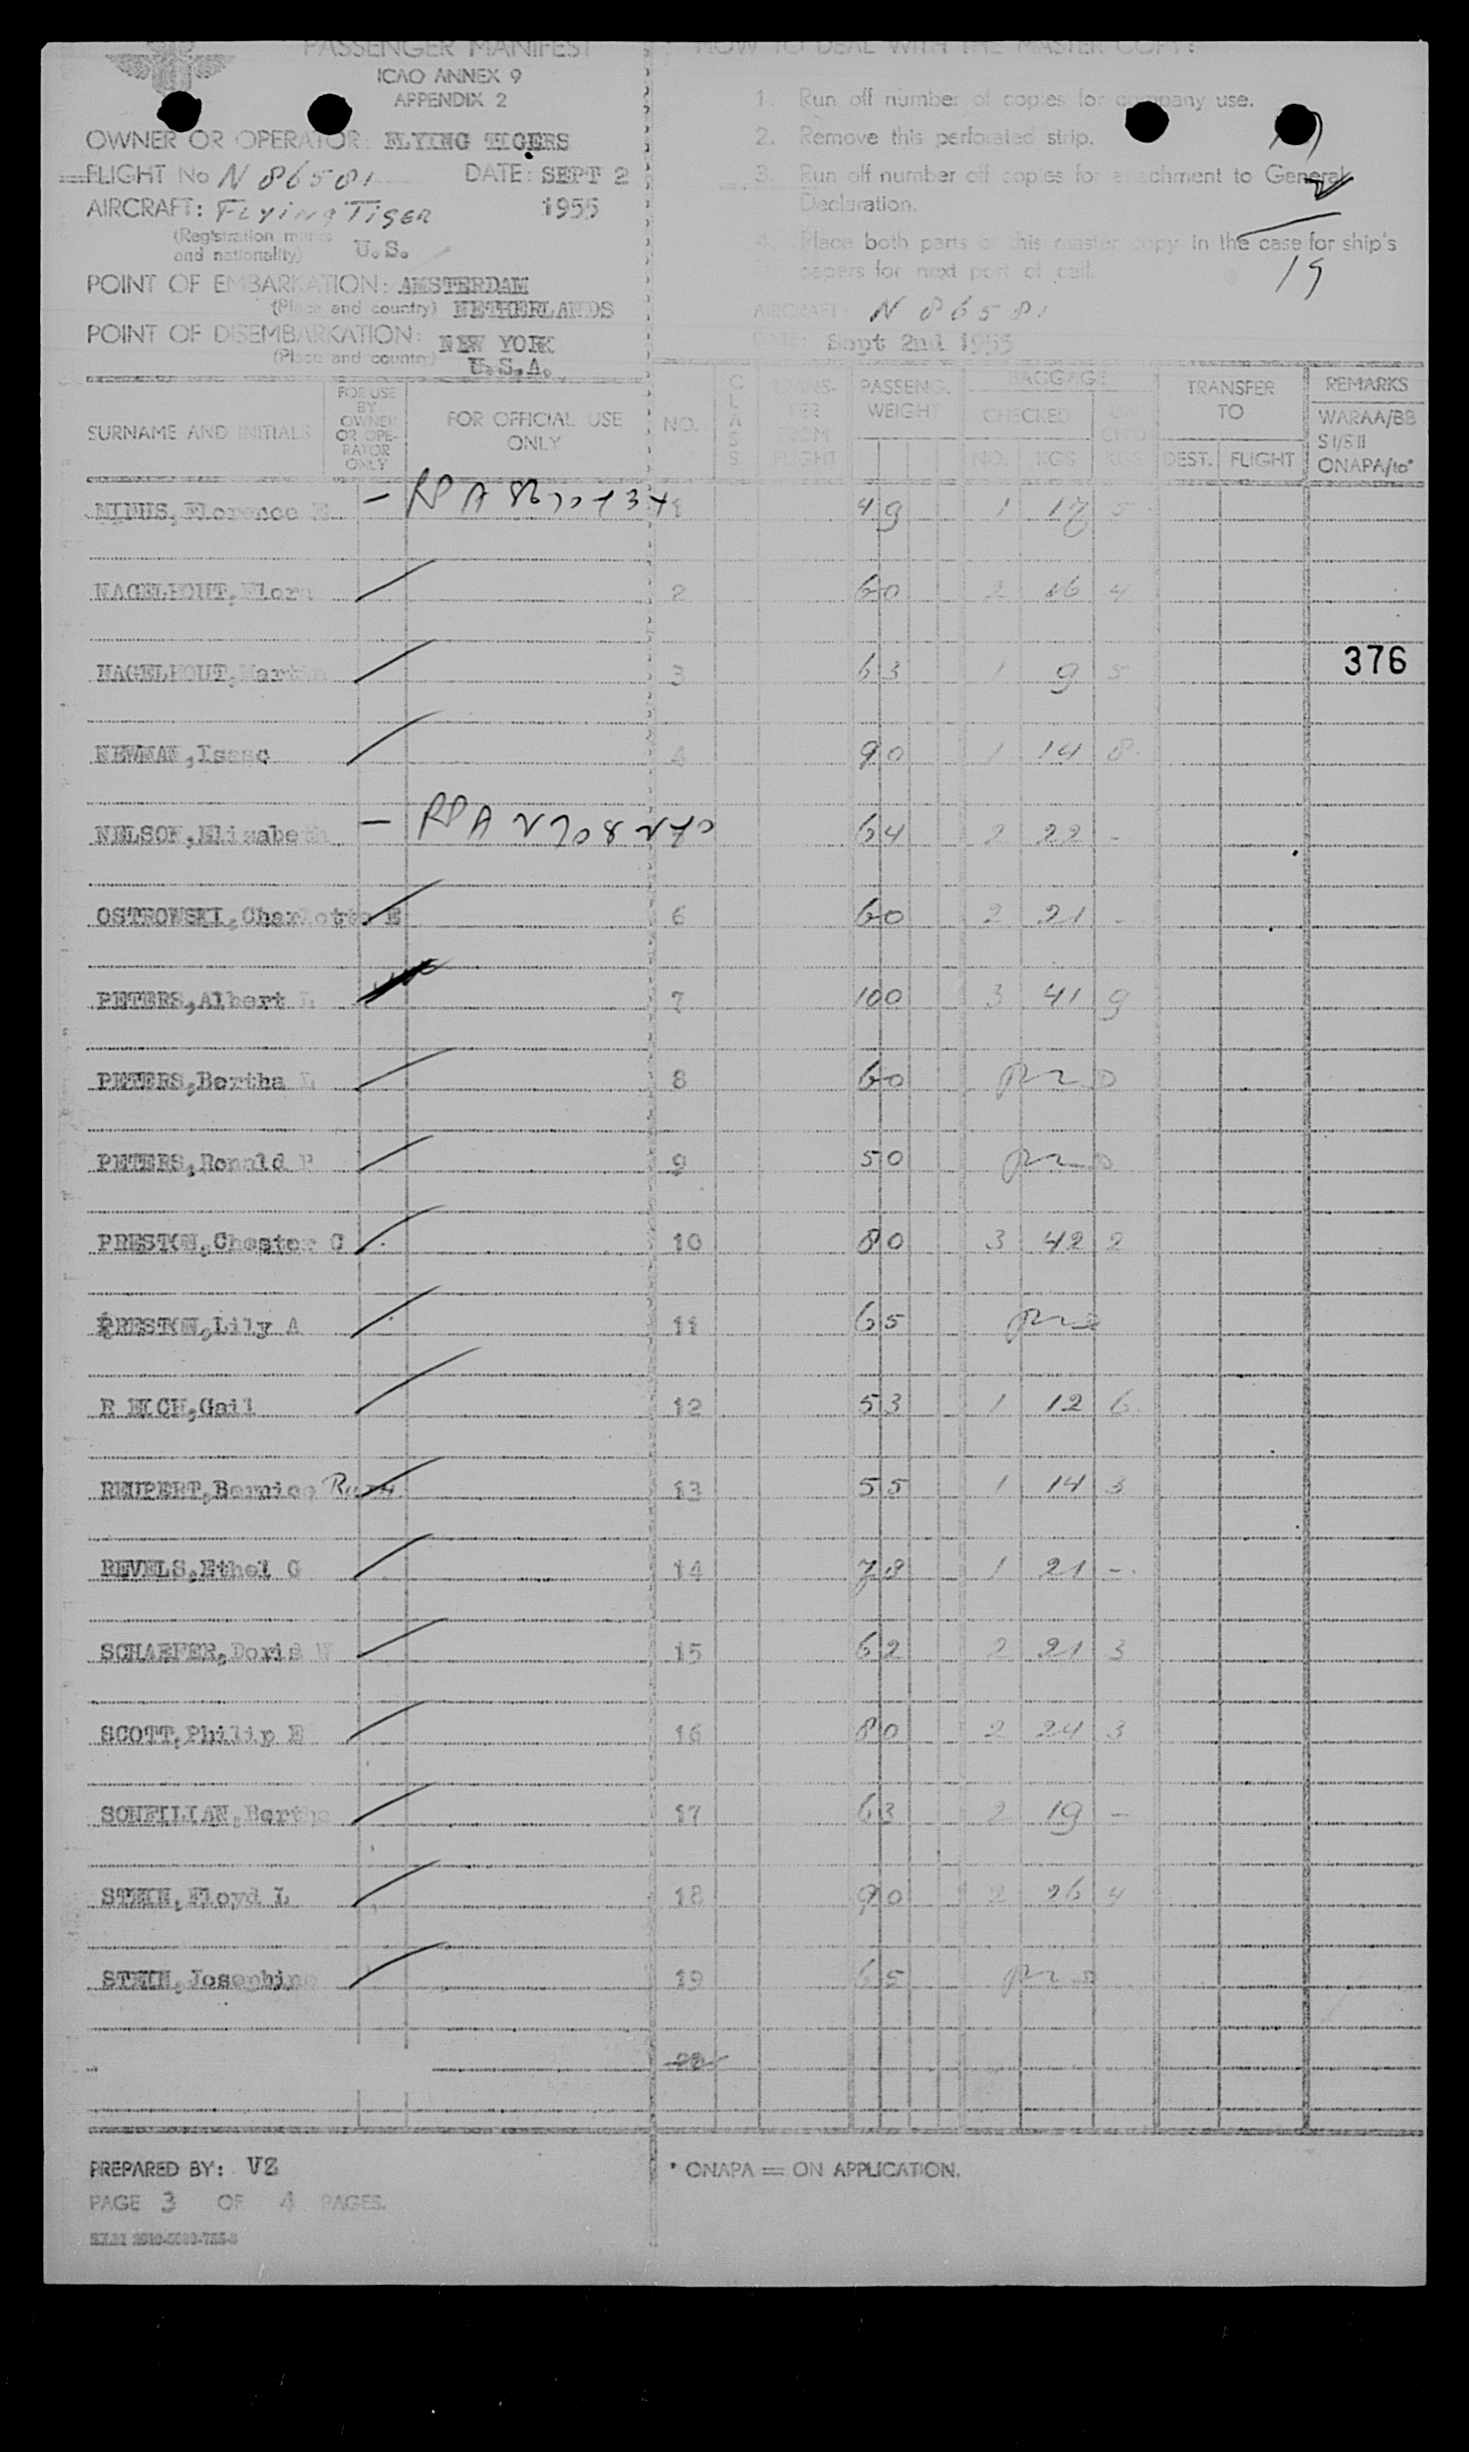 PASSENGER MANIFEST
ICAO ANNEX 9
APPENDIX 2
OWNER OR OPERATOR: FLYING TIGERS
FLIGHT No N 86581 DATE: SEPT 2
AIRCRAFT: FLYING TIGER 1955
(Registration marks
and nationality) U.S.
POINT OF EMBARKATION: AMSTERDAM
(Place and country) NETHERLANDS
POINT OF DISEMBARKATION: NEW YORK
(Place and country) U.S.A.
HOW TO DEAL WITH THE MASTER COPY:
1. Run off number of copies for company use.
2. Remove this perforated strip.
3. Run off number off copies for attachment to General
Declaration.
4. Place both parts of this master copy in the case for ship's
papers for next port of call.
19
AIRCRAFT: N 86581
DATE: Sept 2nd 1955
SURNAME AND INITIALS
FOR USE
BY
OWNER
OR OPE-
RATOR
ONLY
FOR OFFICIAL USE
ONLY
NO.
CLASS
TRANS-
FER
FROM
FLIGHT
PASSENG.
WEIGHT
BAGGAGE
CHECKED
NO. KGS
UN
CH'D
KGS
TRANSFER
TO
DEST. FLIGHT
REMARKS
WARAA/BB
S I/S II
ONAPA/to*
Florence RPA 1 49 1 17 5
NAGELHOUT, Flora 2 60 2 16 4
NAGELHOUT, 3 63 1 9 5
376
NEWMAN, Isaac 4 90 1 14 8
NELSON, Elizabeth — RPA 64 2 22 -
OSTROWSKI, Charlotte E 6 60 2 21 -
PETERS, Albert L 7 100 3 41 9
PETERS, Bertha L 8 60
PETERS, Ronald P 9 50
PRESTON, Chester G 10 80 3 42 2
PRESTON, Lily A 11 65
Gail 12 53 1 12 6
REUPERT, Bernice Ruth 13 55 1 14 3
REVELS, Ethel G 14 78 1 21 -
SCHAEFER, Doris W 15 62 2 21 3
SCOTT, Philip E 16 80 2 24 3
Bertha 17 63 2 19 -
STEIN, Floyd L 18 90 2 26 4
STEIN, Josephine 19 65
20
PREPARED BY: VZ
* ONAPA = ON APPLICATION.
PAGE 3 OF 4 PAGES.